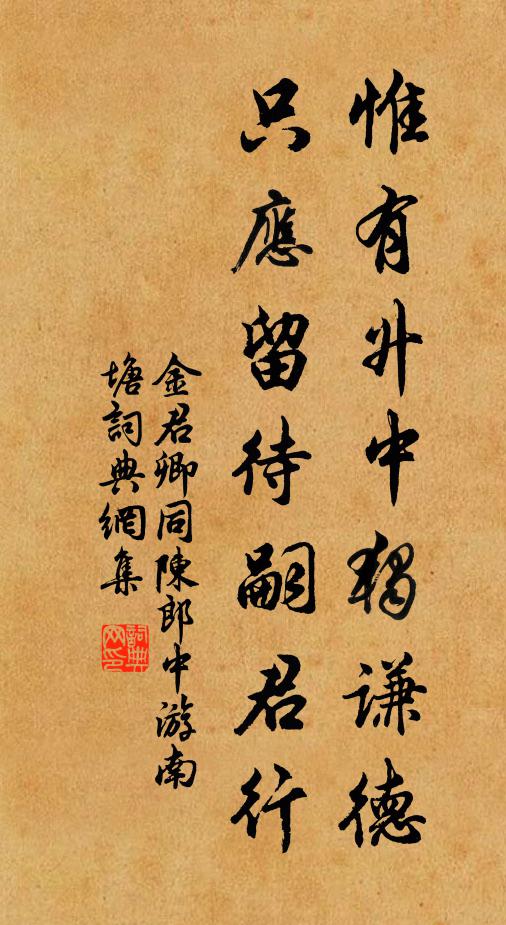 惟有升中猶謙德
只應留待嗣君行
金君卿同陳郎中游南
塘詞典網集
詞典网印